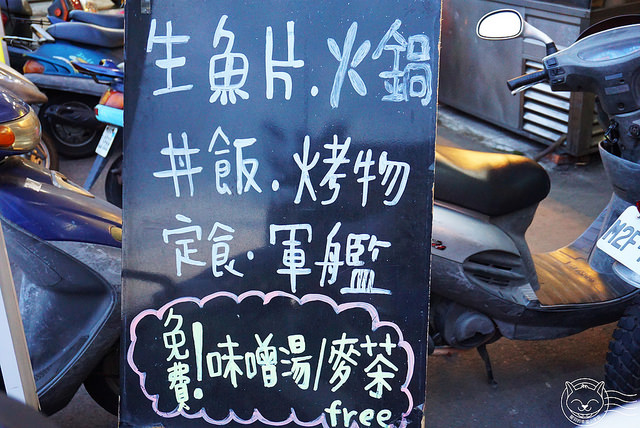 生魚片.火鍋
丼飯.烤物
定食.軍艦
免費!味噌湯/麥茶
free
M2F